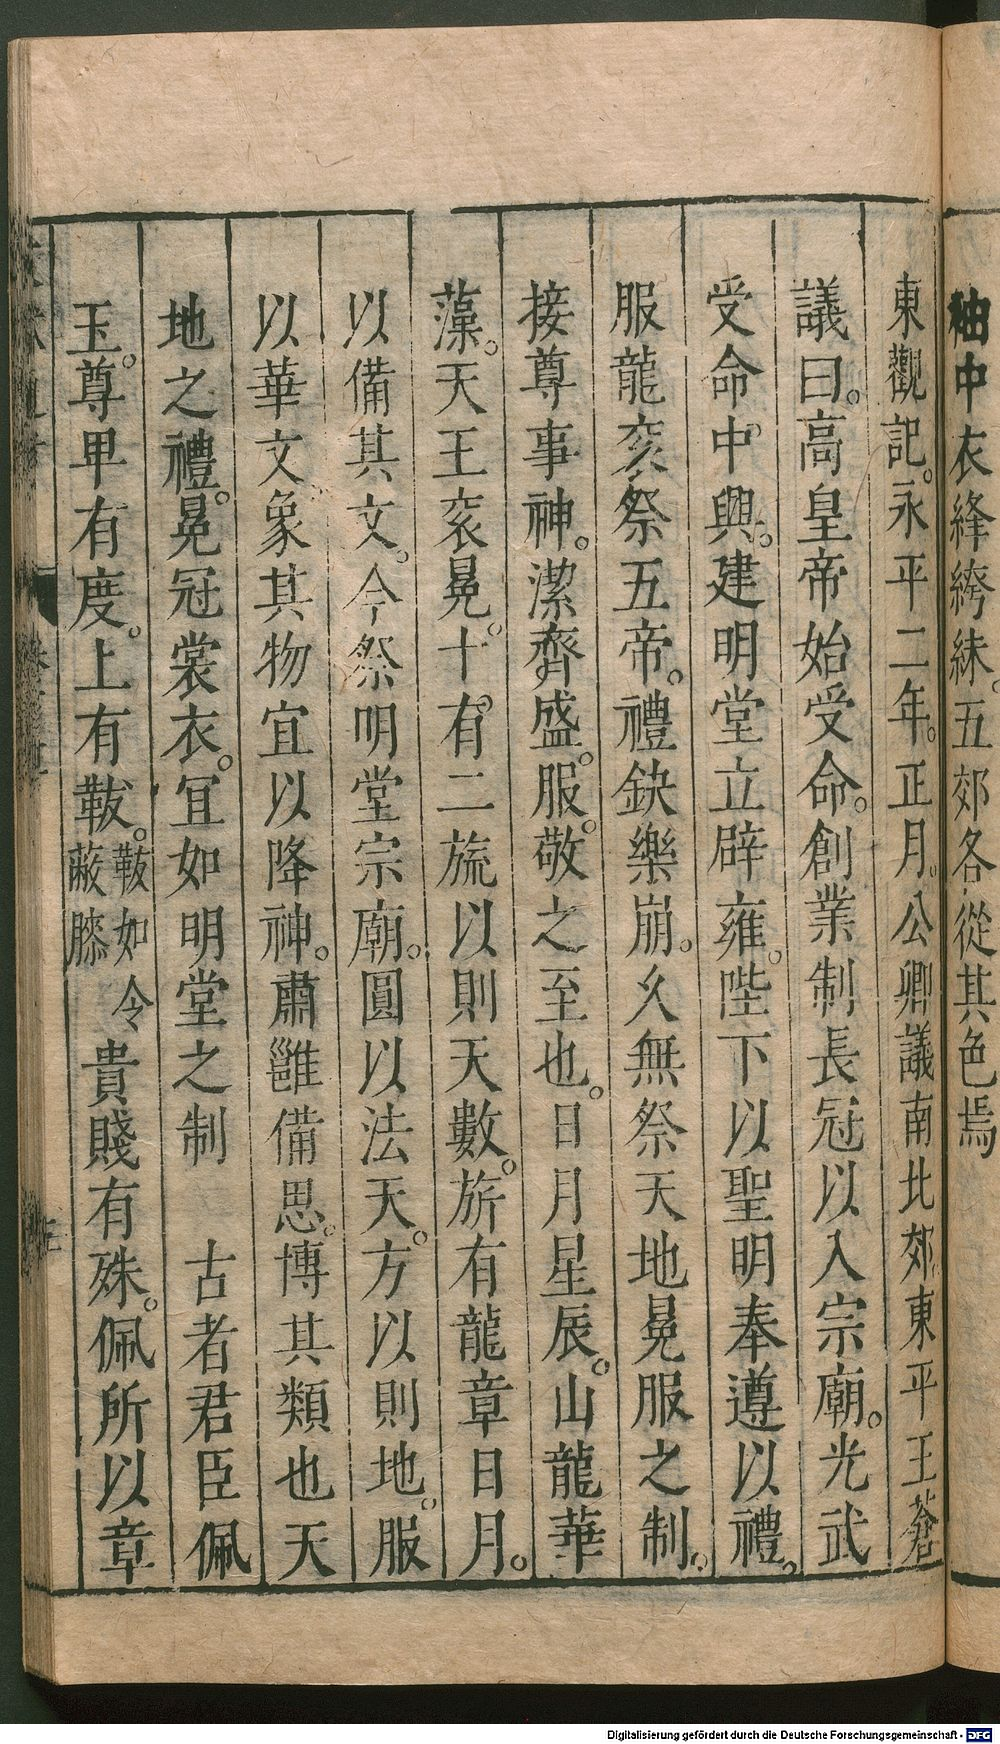 袖中衣絳絝絑。五郊各從其色焉
東觀記。永平二年。正月。公卿議南北郊東平王蒼
議曰。高皇帝始受命。創業制長冠以入宗廟。光武
受命中興。建明堂立辟雍。陛下以聖明奉遵以禮。
服龍衮祭五帝。禮鈌樂崩。久無祭天地冕服之制。
接尊事神。潔齊盛。服。敬之至也。日月星辰。山龍華
藻。天王衮冕。十。有。二旒以則天數。旂有龍章日月。
以備其文。今祭明堂宗廟。圓以法天。方以則地。服
以華文象其物宜以降神。肅雝備思。博其類也天
地之禮。冕冠裳衣。宜如明堂之制　古者君臣佩
玉。尊卑有度。上有韍。韍如今蔽膝貴賤有殊。佩所以章
Digitalisierung gefördert durch die Deutsche Forschungsgemeinschaft - DFG